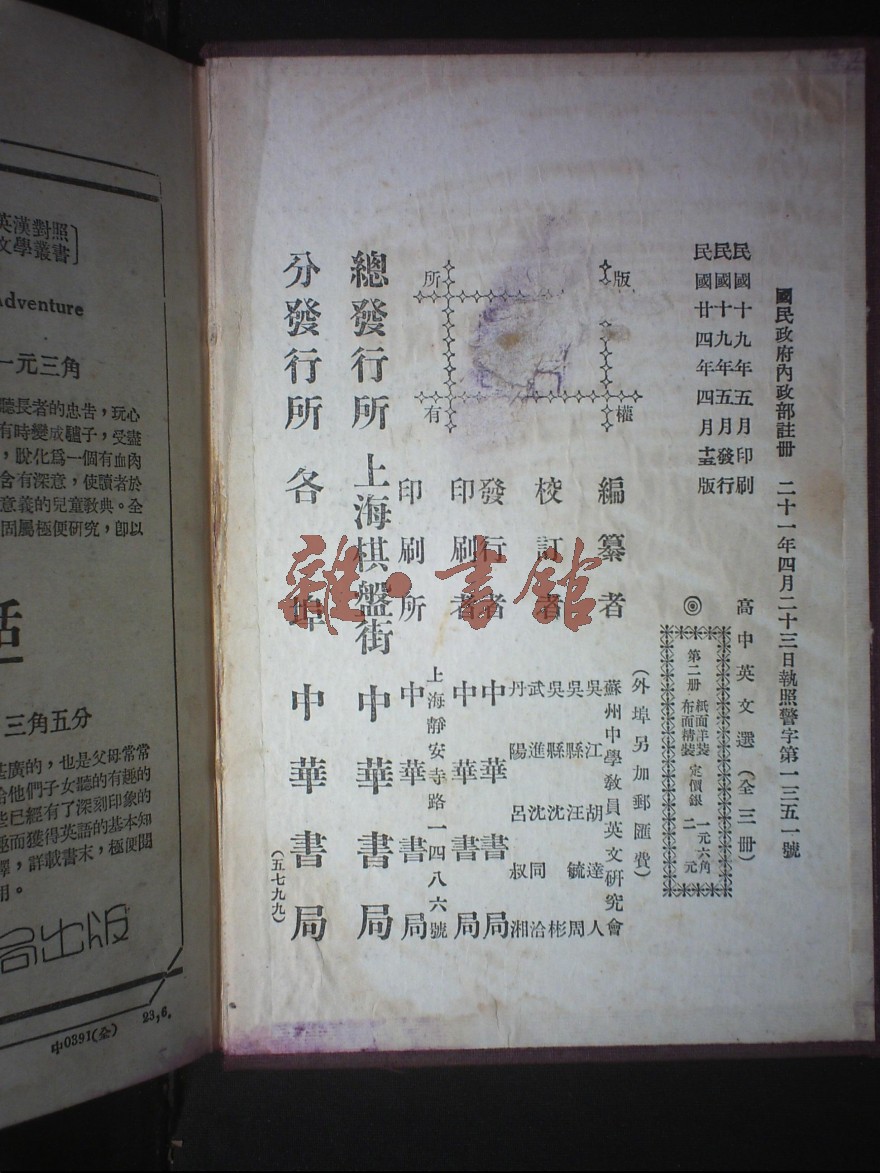 國民政府內政部註冊　二十一年四月二十三日執照警字第一三五一號
民國十九年五月印刷
民國十九年五月發行
民國廿四年四月十五版
高中英文選（全三冊）
◎
第二册
紙面洋裝
布面精裝
定價銀
一元六角
二元
（外埠另加郵匯費）
版權所有
編纂者
蘇州中學教員英文研究會
校訂者
吳江胡達人
吳縣汪毓周
吳縣沈彬
武進沈同洽
丹陽呂叔湘
發行者 中華書局
印刷者 中華書局
上海靜安寺路一四八六號
印刷所 中華書局
總發行所 上海棋盤街 中華書局
分發行所 各埠中華書局
（五七九九）
雜·書館
英漢對照
文學叢書
Adventure
一元三角
聽長者的忠告，玩心
有時變成驢子，受盡
，脫化爲一個有血肉
含有深意，使讀者於
意義的兒童教典。全
固屬極便研究，卽以
話
三角五分
甚廣的，也是父母常常
給他們子女聽的有趣的
些已經有了深刻印象的
趣而獲得英語的基本知
釋，詳載書末，極便閱
用。
局出版
中0391(全) 23,6.